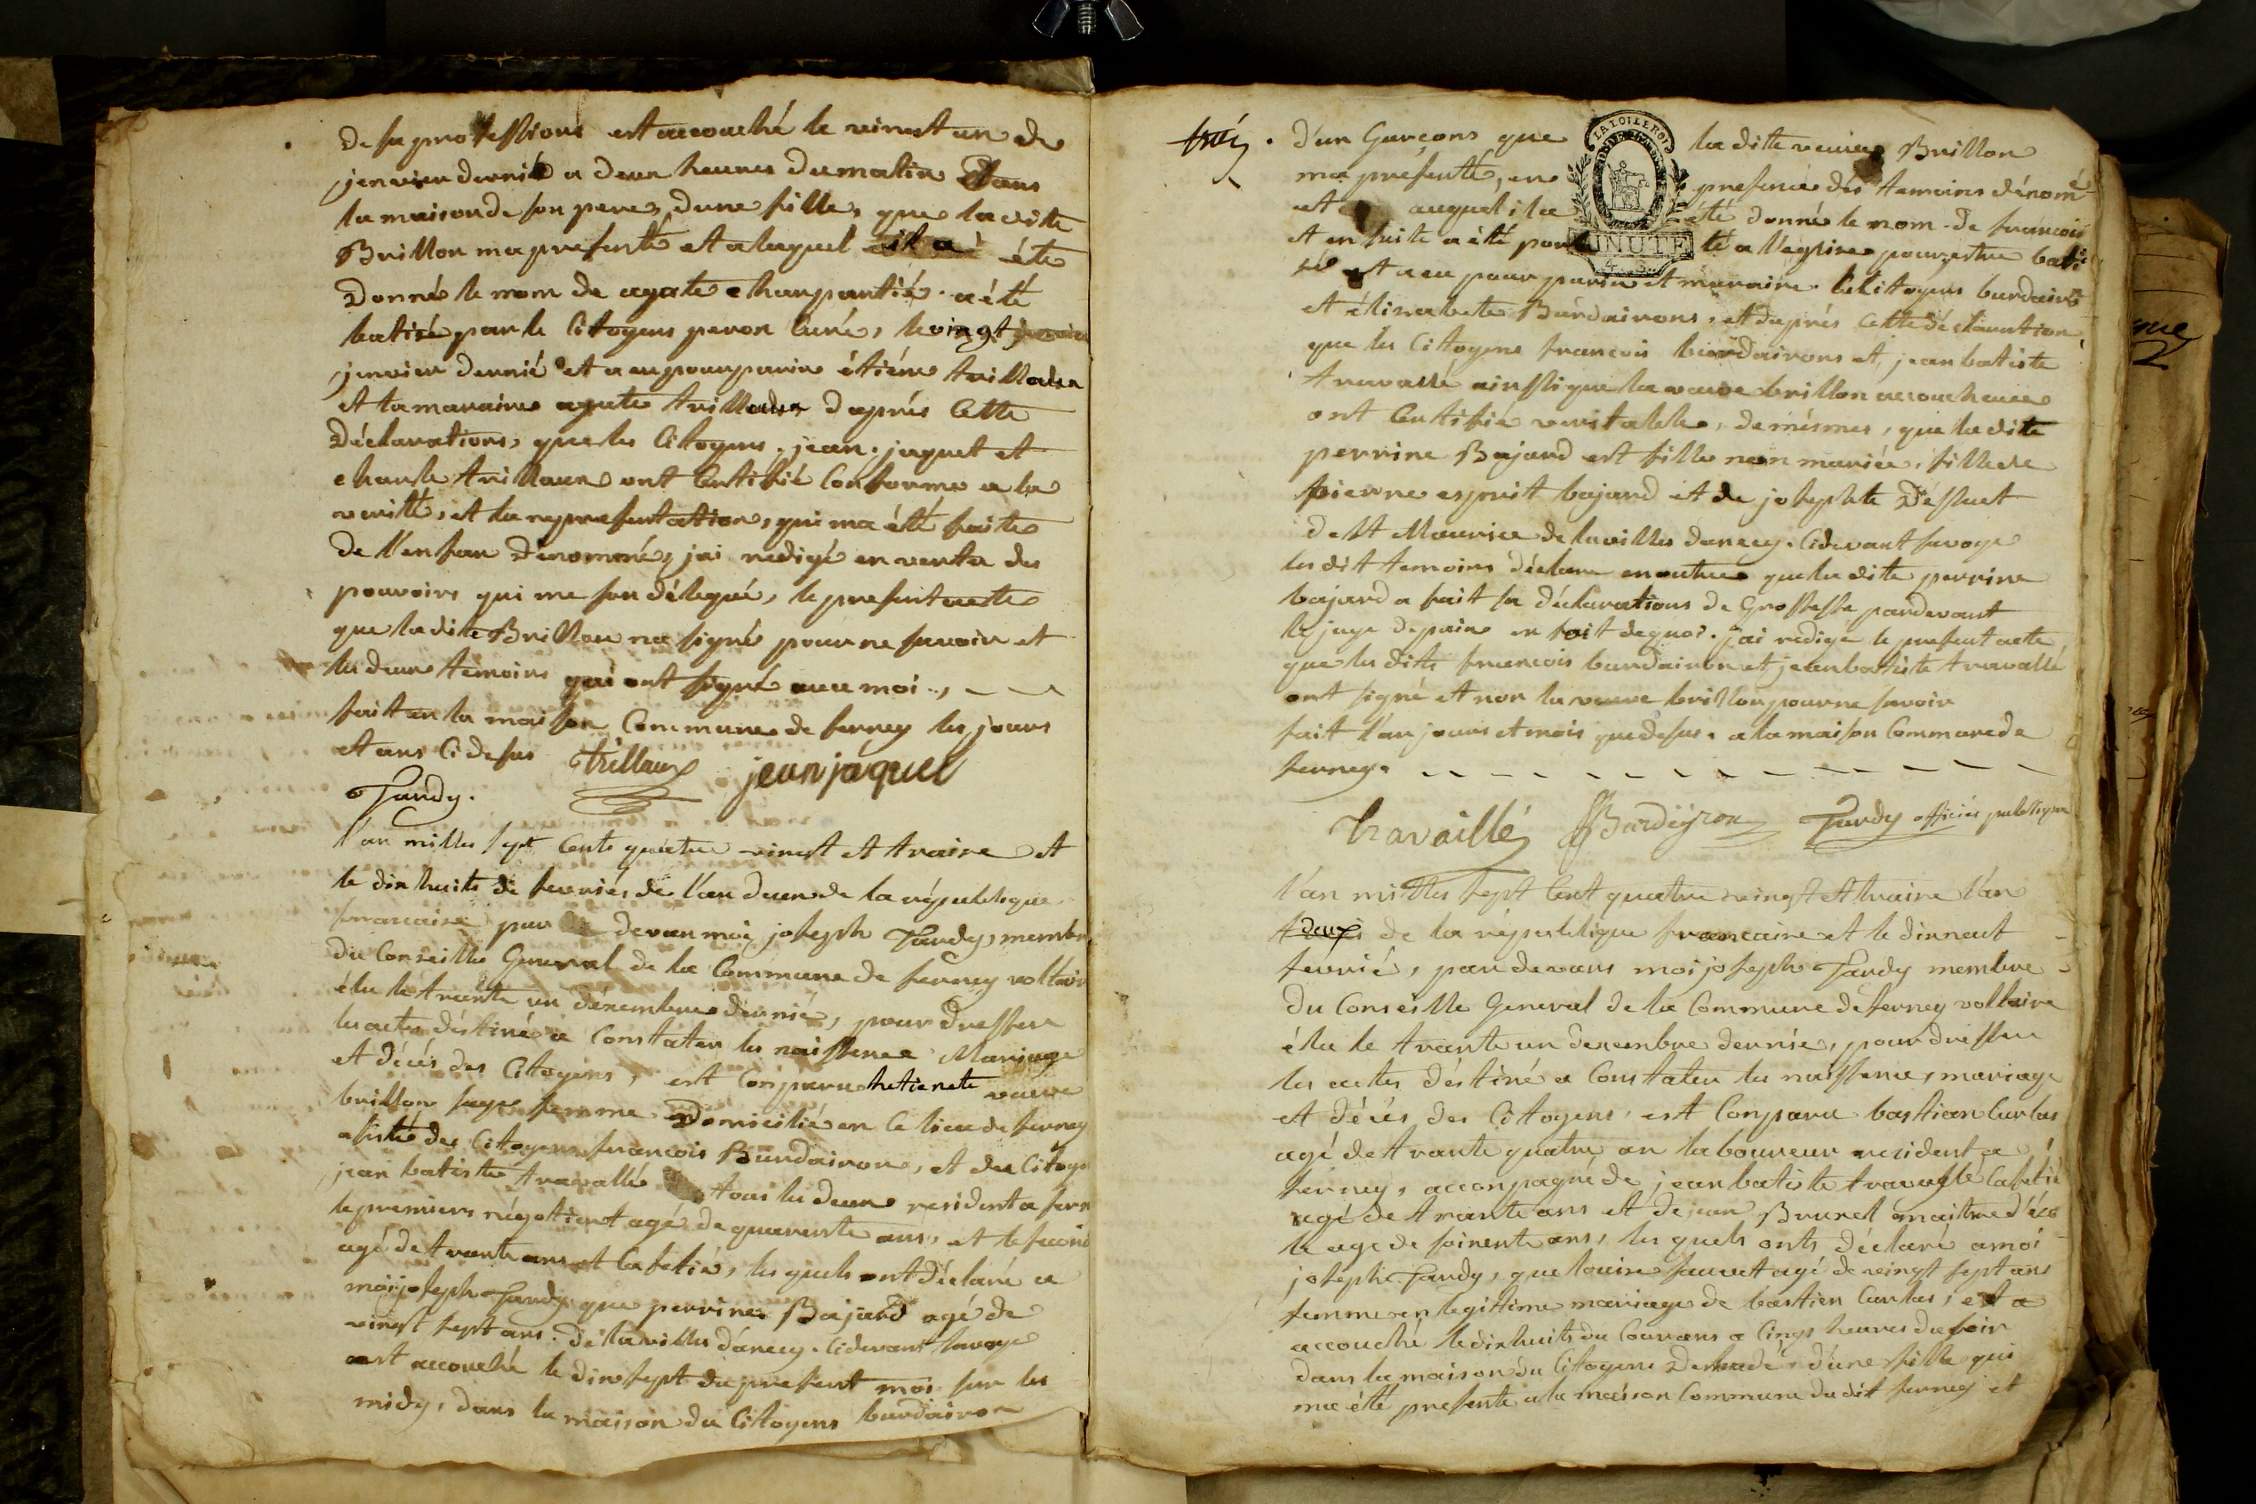 de sa professions est accouché le vinst un de
jenvier dernié a deux heures du matin dans
la maison de son pere, dune fille, que la dite
Brillon ma presenté et a laquel il a été
donné le nom de agate charpantié. a été
batisé par le Citoyens peron curé, le vingt
jenvier dernié et a eu pour parin étiéne trilloux
et la maraine agate trilloux daprés Cette
déclarations, que les Citoyens. jean. jaquet et
charle trilloux ont Certifié Conforme a la
verité, et la representation, qui ma été faite
de l'enfan dénommé, jai redigé en vertu des
pouvoirs qui me son délegué, le present acte
que la dite Brillon na signé pour ne savoir et
les deux temoins qui ont signé avec moi.,
fait en la maison Commune de ferney les jours
et ans Ci desus trilloux jean jaquet
Tardy.
l'an mille sept Cents quatre vinst et traize et
le dix huits de fevriér de l'an deux de la république
francaise par devan moi joseph Tardy, membre
du Conseille General de la Commune de ferney voltair
élu le trente un décembre dernié, pour dresser
les actes déstiné a Constater les naissence Mariage
et décés des Citoyens, est Conparu veuve
brillon sage femme Domicilié en Ce lieu de ferney
asisté des Citoyens francois Burdairon, et du Citoye
jean batiste travallé tous les deux resident a fern
le premiers négotient agé de quarente ans, et le second
agé de trante ans et Cafetié, les quels ont déclaré a
moi joseph Tardy que perrine Bajard agé de
vinst sept ans. de la ville dánecy. Cidevant Savoye
est accouché le dix sept du present mois sur les
midy, dans la maison du Citoyens burdairon
trés.
LA LOI LE ROI
MINUTE
4 S.
d'un Garçons que la dite veuve Brillon
ma presenté, en presence dés temoins dénomé
et auquel il a été donné le nom. de francois
et en suite a été porté a l'eglise pour estre bati
sé et a eu pour parin et maraine. le Citoyens burdairon
et élizabete Burdairons, et daprés Cette déclaration,
que les Citoyens francois burdairons et, jean batiste
travallé ainssi que la veuve brillon acoucheuse
ont Certifié veritable, de mésmes, que la dite
perrine Bajard est fille non mariée, fille de
pierre esprit bajard et de josephte Déssuet
de St Maurice de la ville danecy. Cidevant Savoye
les dit temoins déclare en outre que la dite perrine
bajard a fait sa déclarations de Grossesse pardevant
le juge de paix en foit de quoi. jai redige le present acte
que les dits francois burdairon et jean batiste travallé
ont signé et non la veuve brillon pour ne savoir
fait l'an jours et mois que desus. a la maison Commune de
ferney.
Travaillé Burdeÿron Tardy officiér publiqu
l'an mille sept Cent quatre vingst et traize l'an
deux de la république francaise et le dix neuf
février, par devans moi joseph Tardy membre
du Conseille General de la Commune dé ferney voltaire
élu le trante un decembre dernié, pour dresser
les actes déstiné a Constater les naissence, mariage
et décés des Citoyens, est Conparu bastian Curlas
agé de trante quatre an laboureur resident a
ferney, acconpagné de jean batiste travaillé Cafetié
agé de trante ans et de jean Brunel maitre d'éco
le age de soixente ans, les quels onts déclaré a moi
joseph Tardy, que louise agé de vingt sept ans
femme en legitime mariage de bastien Curlas, est a
accouché le dix huits du Courans a Cinqs heures du soir
dans la maison du Citoyens d'une fille qui
ma été presenté a la maison Commune du dit ferney et